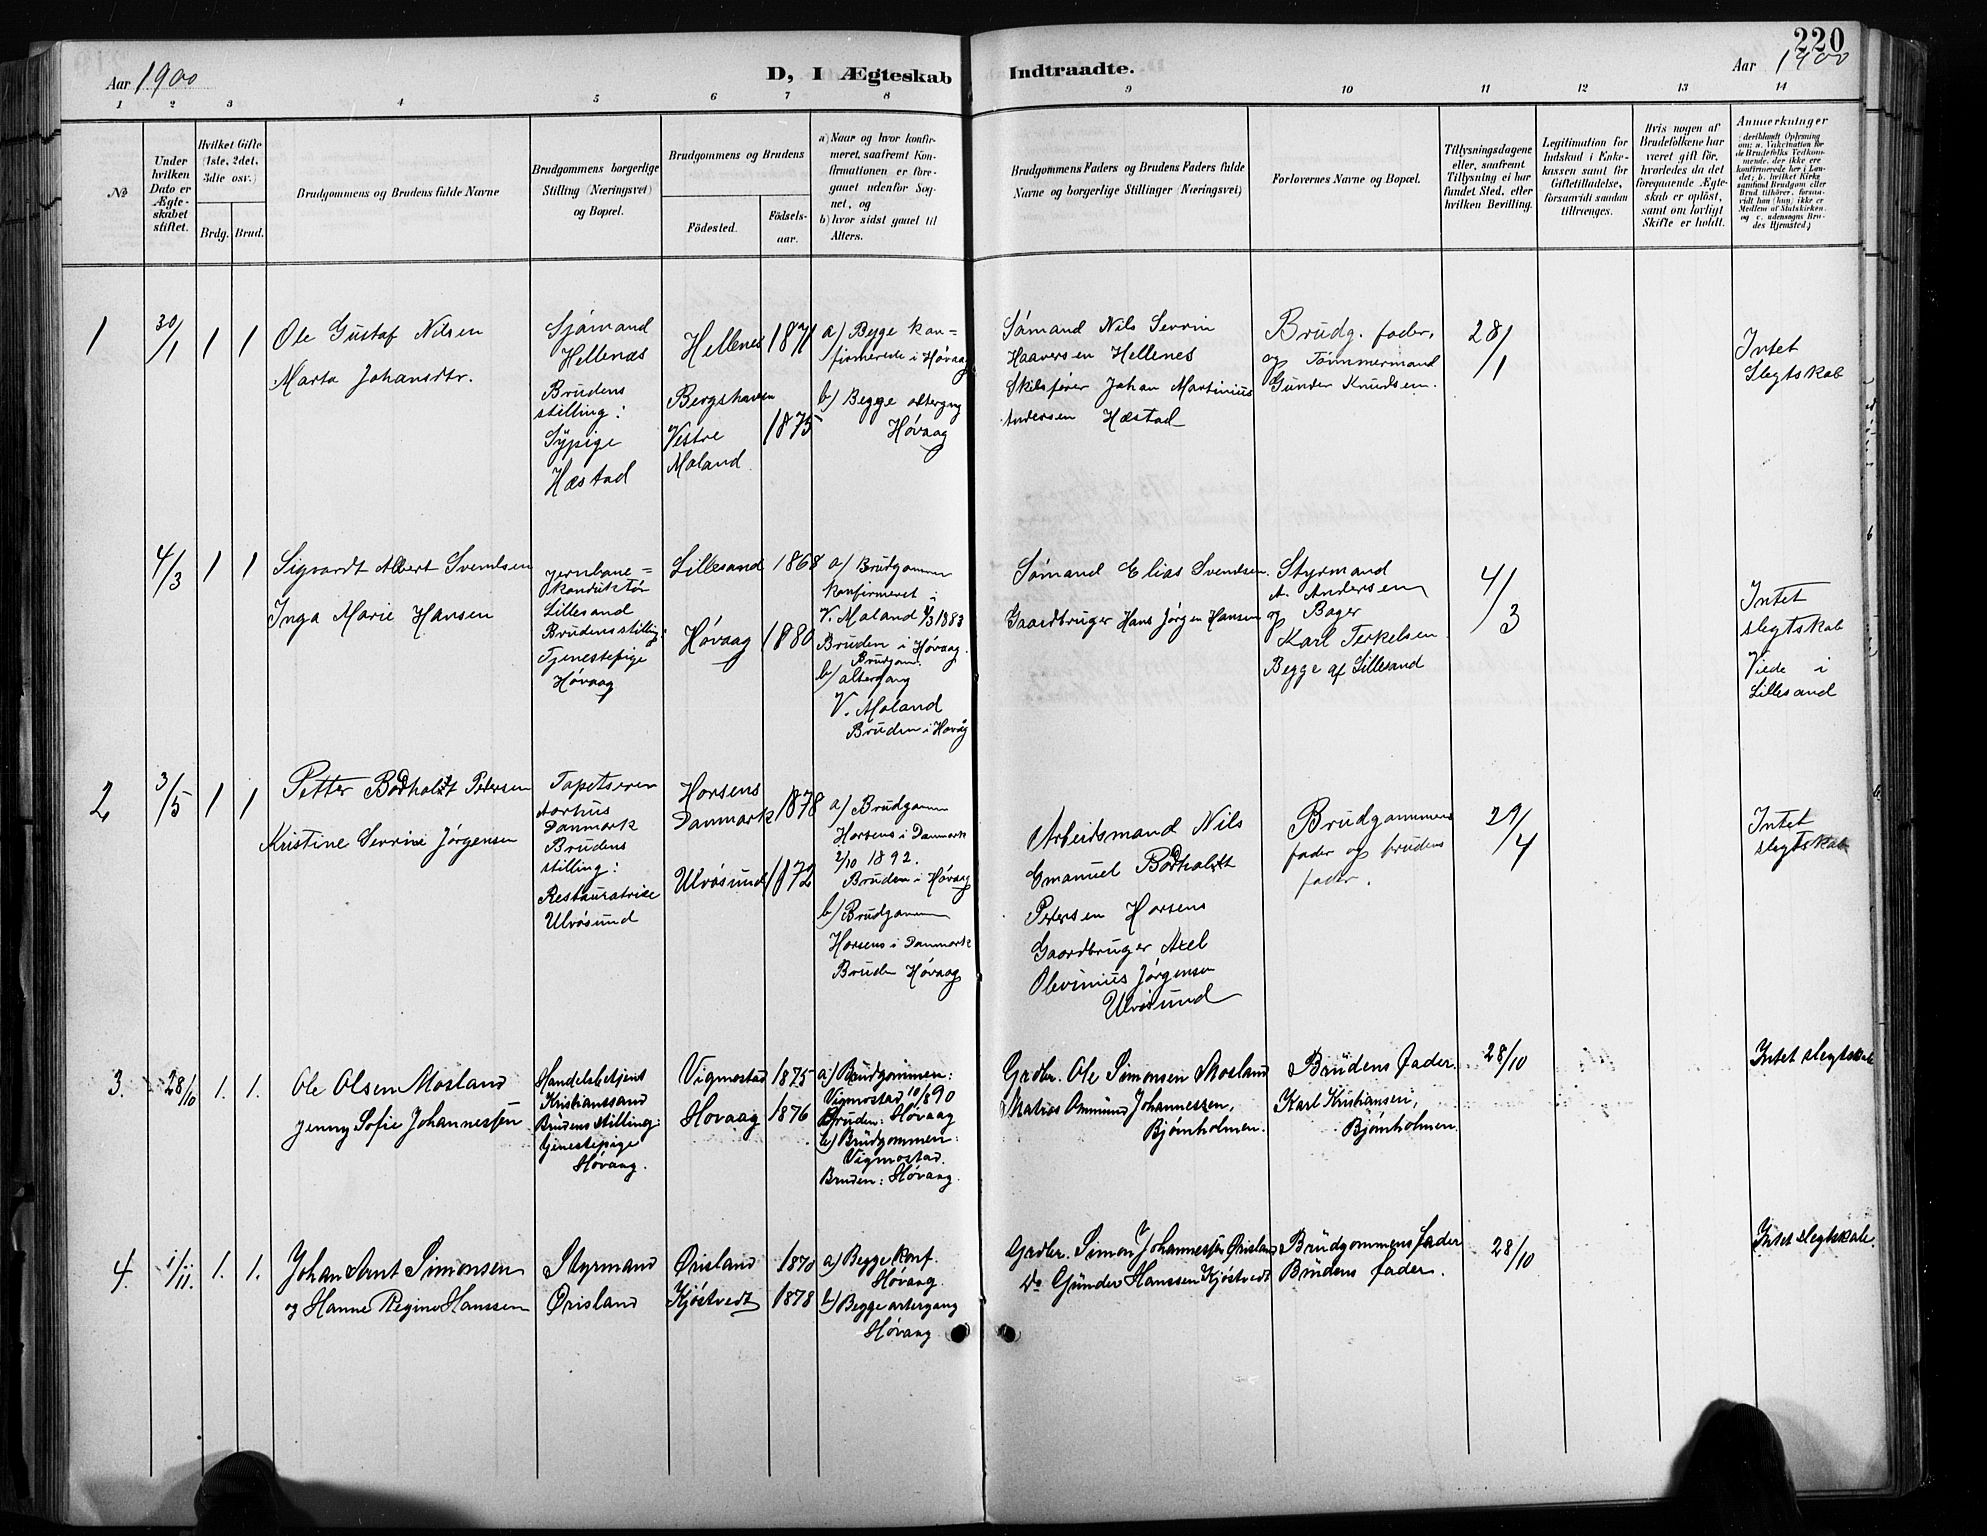 220
Aar 1900
D, I Ægteskab
Indtraadte.
Aar 1900
1 2 3 4 5 6 7 8 9 10 11 12 13 14
№
Under
hvilken
Dato er
Ægte-
skabet
stiftet.
Hvilket Gifte
(1ste, 2det,
3die osv.)
Brdg. Brud.
Brudgommens og Brudens fulde Navne
Brudgommens borgerlige
Stilling (Næringsvei)
og Bopæl.
Brudgommens og Brudens
Fødested.
Fødsels-
aar.
a) Naar og hvor konfir-
meret, saafremt Kon-
firmationen er fore-
gaaet udenfor Sog-
net, og
b) hvor sidst gaaet til
Alters.
Brudgommens Faders og Brudens Faders fulde
Navne og borgerlige Stillinger (Næringsvei)
Forlovernes Navne og Bopæl.
Tillysningsdagene
eller, saafremt
Tillysning ei har
fundet Sted, efter
hvilken Bevilling.
Legitimation for
Indskud i Enke-
kassen samt for
Giftetilladelse,
forsaavidt saadan
tiltrænges.
Hvis nogen af
Brudefolkene har
været gift før,
hvorledes da det
foregaaende Ægte-
skab er opløst,
samt om lovligt
Skifte er holdt.
Anmærkninger
(deriblandt Oplysning
om: a. Vakcination for
de Brudefolks Vedkom-
mende, der ikke ere
konfirmerede her i Lan-
det; b. hvilket Kirke
samfund Brudgom eller
Brud tilhører, forsaa-
vidt han (hun) ikke er
Medlem af Statskirken,
og c. udensogns Bru-
des Hjemsted.)
1
30/1
1 1
Ole Gustaf Nilsen
Marta Johansdtr.
Sjømand
Hellenæs
Brudens
stilling:
Sypige
Hæstad
Hellenes
Bergshaven
Vestre
Moland
1871
1875
a) Begge kon=
firmerede i Høvaag
b) Begge altergng
Høvaag
Sømand Nils Sevrin
Haaversen Hellenes
Skibsfører Johan Martinius
Andersen Hæstad
Brudg. fader,
og Tømmermand
Gunder Knudsen.
28/1
Intet
Slegtskab
4/3
1 1
Sigvardt Albert Svendsen
Inga Marie Hansen
Jernbane=
konduktør
Lillesand
Brudens stilling:
Tjenestepige
Høvaag
Lillesand
Høvaag
1868
1880
a) Brudgommen
konfirmeret i
V. Moland 4/3 1883
Bruden i Høvaag.
Brudgom.
b) altergang
V. Moland
Bruden i Høvåg
Sømand Elias Svendsen.
Gaardbruger Hans Jørgen Hansen
Styrmand
A. Andersen
og Bager
Karl Terkelsen
Begge af Lillesand
4/3
Intet
slegtskab
Viede i
Lillesand
2
3/5
1 1
Petter Bødholdt Petersen
Kristine Sevrine Jørgensen
Tapetserer
Aarhus
Danmark
Brudens
stilling:
Restauratrise
Ulvøsund
Horsens
Danmark
Ulvøsund
1878
1872
a) Brudgommen
Horsens i Danmark
2/10 1892.
Bruden i Høvaag
b) Brudgommen
Horsens i Danmark
Bruden Høvaag
Arbeidsmand Nils
Emanuel Bødholdt
Petersen Horsens
Gaardbruger Axel
Olevinius Jørgensen
Ulvøsund
Brudgommens
fader og brudens
fader.
29/4
Intet
slegtskab
3.
28/10
1. 1.
Ole Olsen Mosland
Jenny Sofie Johannessen
Handelsbetjent
Kristianssand
Brudens stilling:
tjenestepige
Høvaag.
Vigmostad
Høvaag
1875
1876
a) Brudgommen:
Vigmostad 10/8 90
Bruden: Høvaag
b) Brudgommen:
Vigmostad.
Bruden: Høvaag.
Grdbr. Ole Simonsen Mosland
Matros Ommund Johannessen,
Bjørnholmen.
Brudens fader.
Karl Kristiansen,
Bjørnholmen.
28/10
Intet slegtskab
4.
1/11.
1. 1.
Johan Arnt Simonsen
og Hanne Regine Hanssen
Styrmand
Ørisland
Ørisland
Kjøstvedt
1870
1878
a) Begge konf.
Høvaag.
b) Begge artergang
Høvaag
Grdbr. Simon Johannessen Ørisland
Do Gunder Hanssen Kjøstvedt
Brudgommens fader
Brudens fader.
28/10
Intet slegtskab.